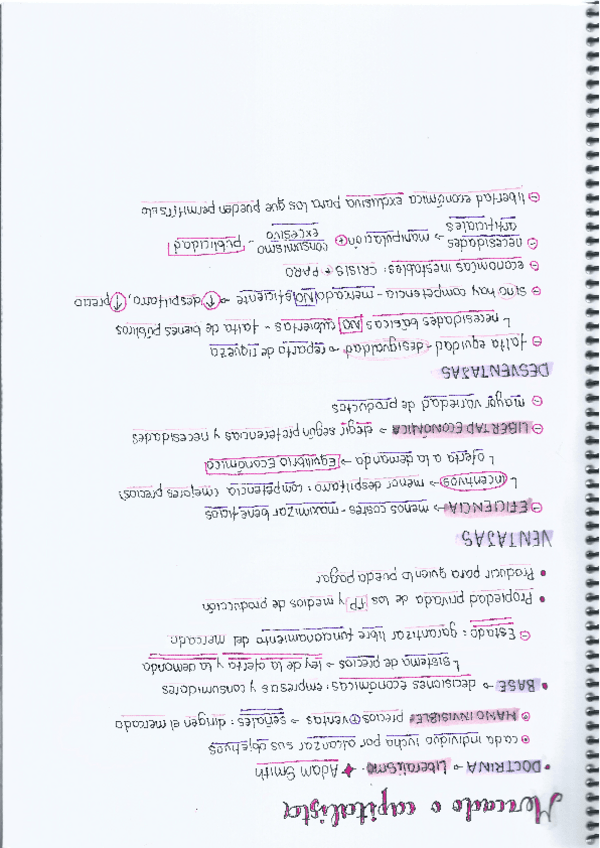 Mercado o capitalista
• DOCTRINA → Liberalismo. ✦ Adam Smith
⊖ cada individuo lucha por alcanzar sus objetivos
⊖ MANO INVISIBLE: precios ventas → señales: dirigen el mercado
• BASE → decisiones económicas: empresas y consumidores
↳ sistema de precios → ley de la oferta y la demanda
⊖ Estado: garantizar libre funcionamiento del mercado.
• Propiedad privada de los FP y medios de producción
• Producir para quien lo pueda pagar
VENTAJAS
⊖ EFICIENCIA → menos costes - maximizar beneficios
↳ incentivos → menor despilfarro: competencia (mejores precios)
↳ oferta a la demanda → Equilibrio Económico
⊖ LIBERTAD ECONÓMICA → elegir según preferencias y necesidades
⊖ mayor variedad de productos
DESVENTAJAS
⊖ falta equidad - desigualdad → reparto de riqueza
↳ necesidades básicas NO cubiertas - falta de bienes públicos
⊖ si no hay competencia - mercado NO eficiente → ↑ despilfarro, ↑ precio
⊖ economías inestables: CRISIS + PARO
⊖ necesidades artificiales → manipulación ⊕ consumismo excesivo - publicidad
⊖ libertad económica exclusiva para los que pueden permitírselo